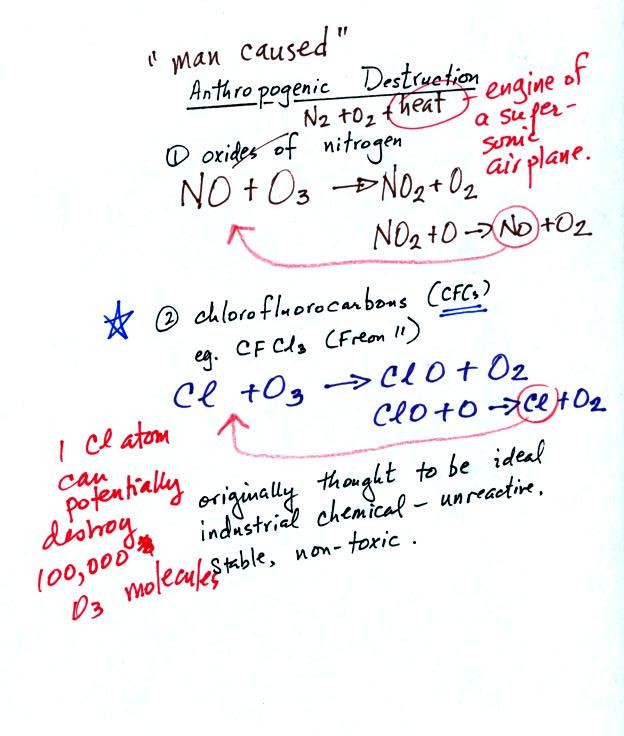 "man caused"
Anthropogenic Destruction
N2 + O2 + heat - engine of a super-sonic airplane.
① oxides of nitrogen
NO + O3 → NO2 + O2
NO2 + O → NO + O2
② chlorofluorocarbons (CFCs)
eg. CFCl3 (Freon 11)
Cl + O3 → ClO + O2
ClO + O → Cl + O2
1 Cl atom
can
potentially
destroy
100,000
O3 molecules
originally thought to be ideal
industrial chemical - unreactive,
stable, non-toxic.